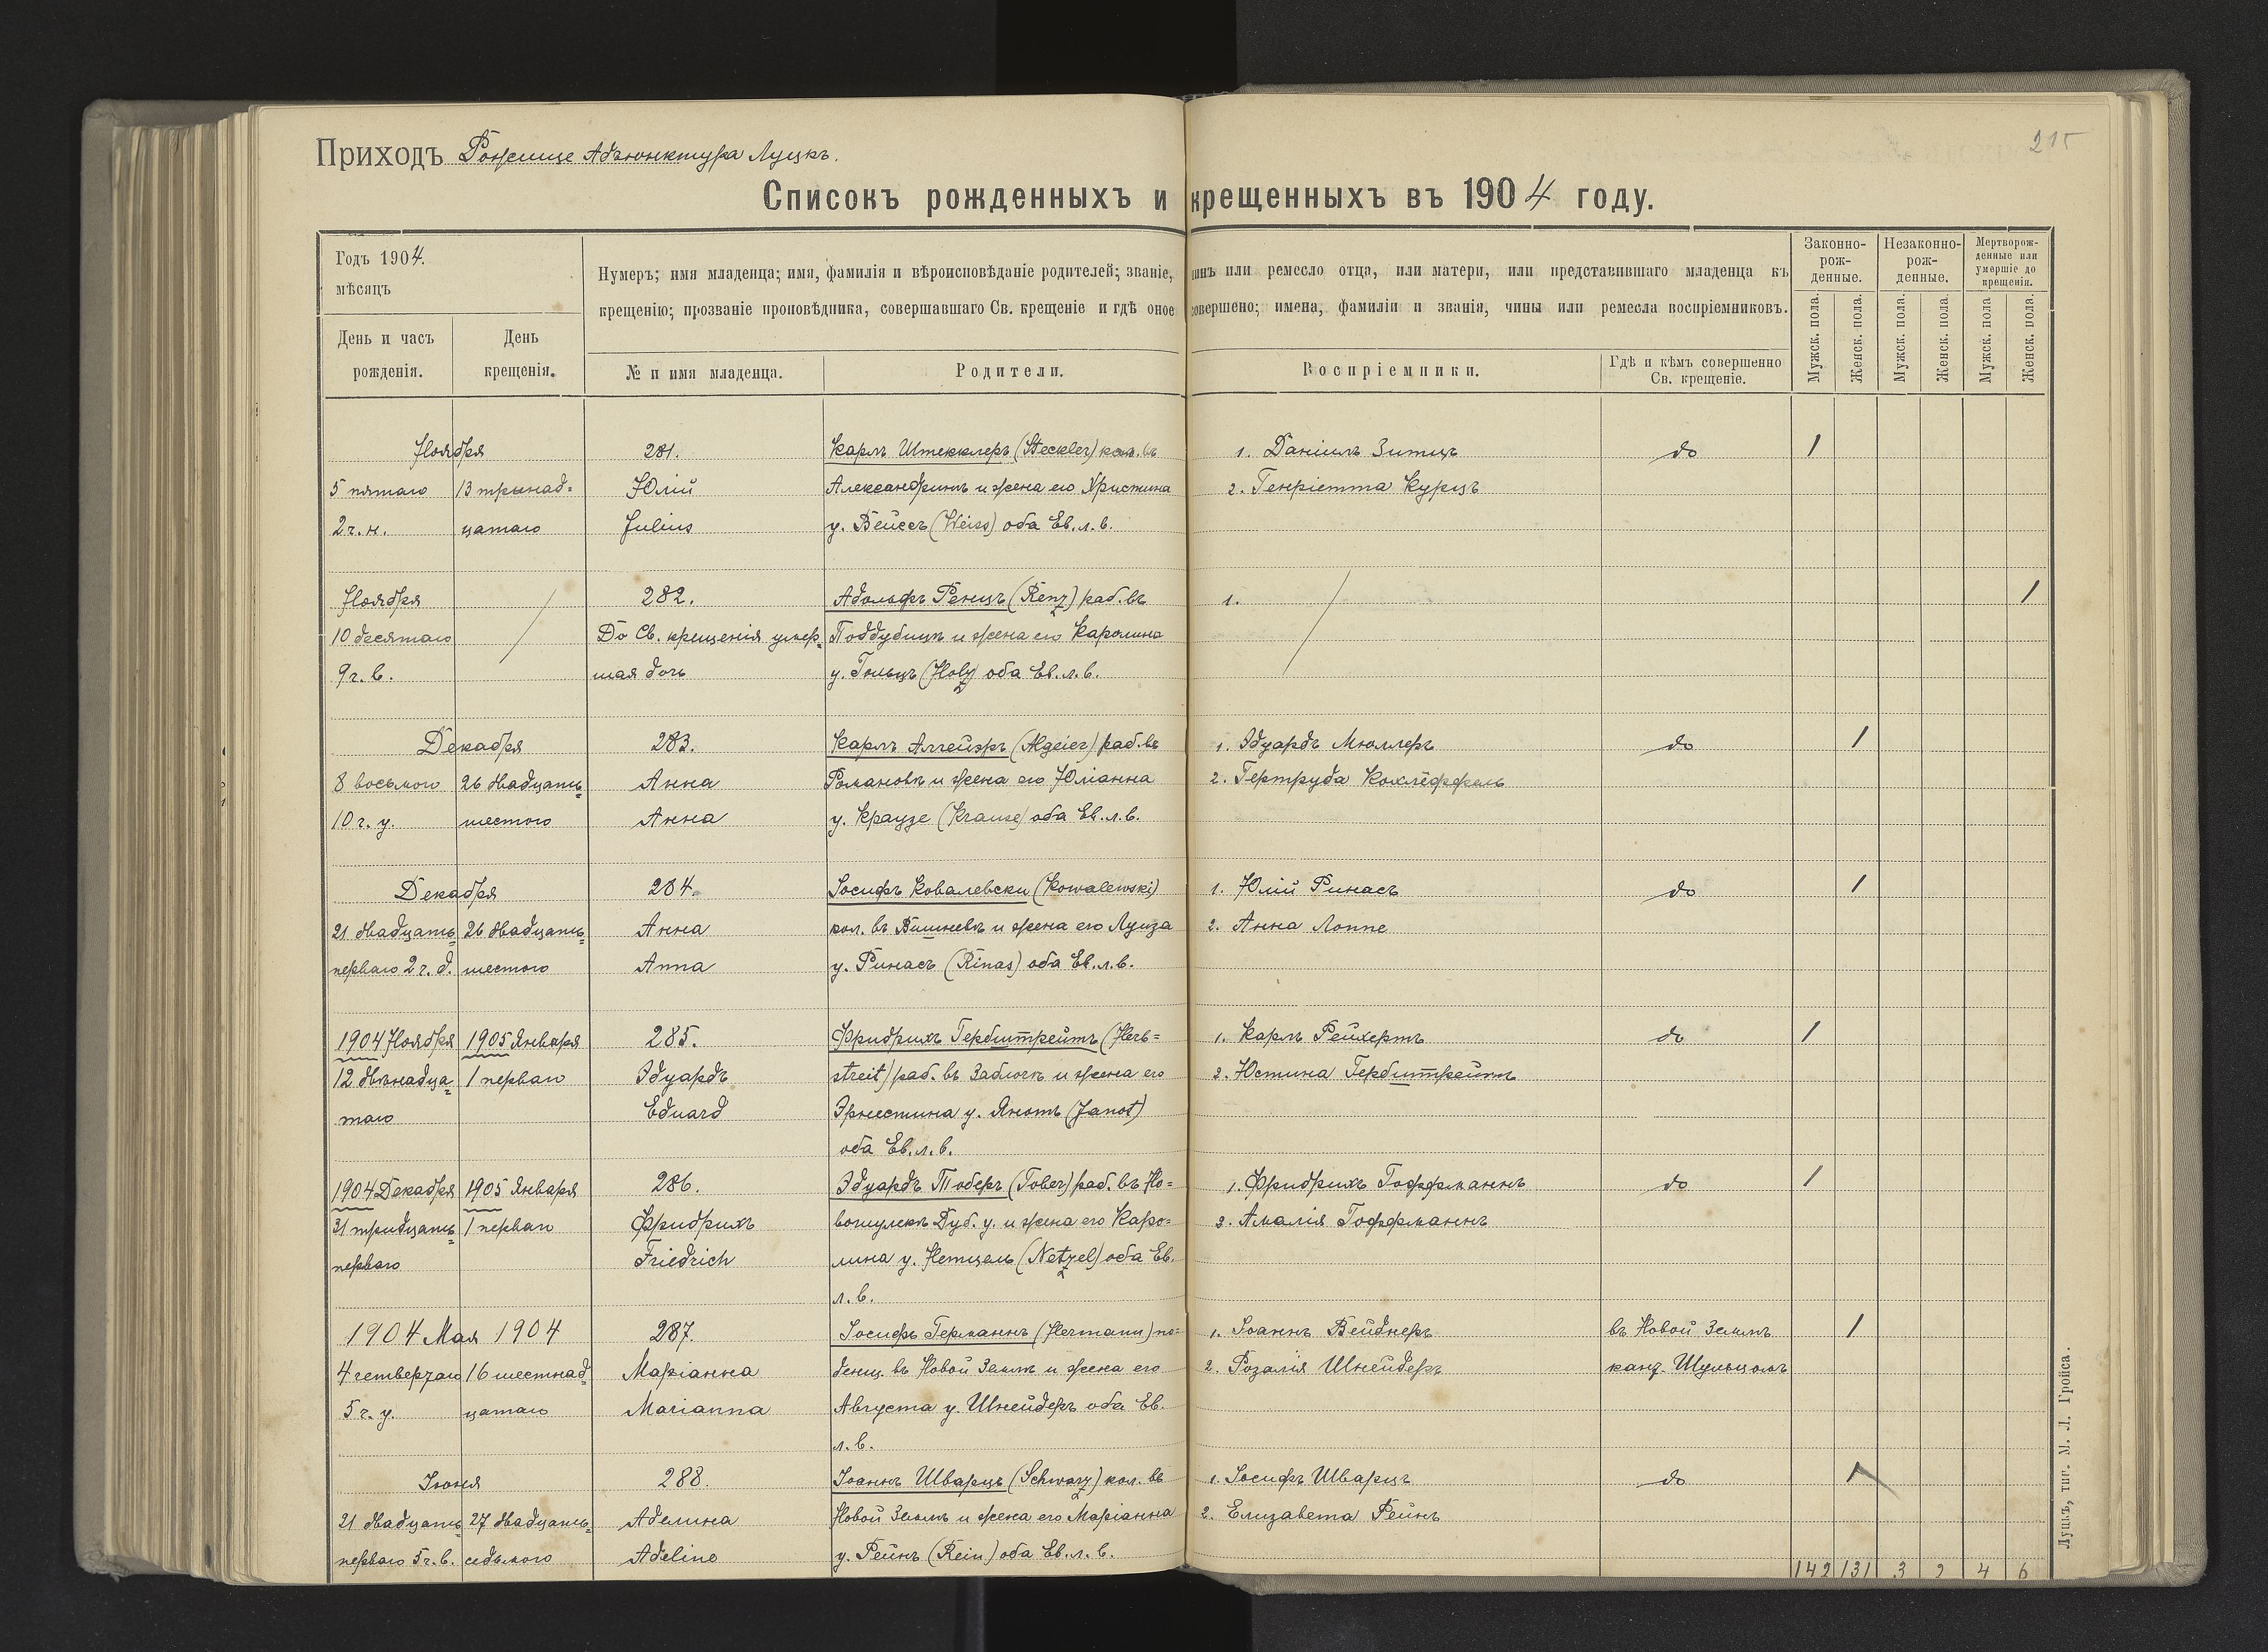 Приходъ Рожище Адъюнктура Луцкъ.
215
Списокъ рожденныхъ и крещенныхъ въ 1904 году.
Годъ 1904.
мѣсяцъ
День и часъ рожденія.
День крещенія.
Нумеръ; имя младенца; имя, фамилія и вѣроисповѣданіе родителей; званіе, чинъ или ремесло отца, или матери, или представившаго младенца къ
крещенію; прозваніе проповѣдника, совершавшаго Св. крещеніе и гдѣ оное совершено; имена, фамиліи и званія, чины или ремесла воспріемниковъ.
№ и имя младенца.
Родители.
Воспріемники.
Гдѣ и кѣмъ совершенно Св. крещеніе.
Законно-рож-денные.
Незаконно-рож-денные.
Мертворож-денные или умершіе до крещенія.
Мужск. пола.
Женск. пола.
Мужск. пола.
Женск. пола.
Мужск. пола
Женск. пола.
Ноября 281. Карлъ Штекклеръ (Steckler) кол. въ 1. Даніилъ Зитцъ до 1
5 пятаго 13 тринад= Юлій Александринѣ и жена его Христина 2. Генріетта Курцъ
2 ч. н. цатаго Julius у. Вейссъ (Weiss) оба Ев. л. в.
Ноября 282. Адольфъ Ренцъ (Renz) раб. въ 1. 1
10 десятаго До Св. крещенія умер= Поддубицѣ и жена его Каролина
9 ч. в. шая дочь у. Гольцъ (Holz) оба Ев. л. в.
Декабря 283. Карлъ Алгейэръ (Algeier) раб. въ 1. Эдуардъ Мюллеръ до 1
8 восьмого 26 двадцать= Анна Романовѣ и жена его Юліанна 2. Гертруда Кохлёффель
10 ч. у. шестого Анна у. Краузе (Krause) оба Ев. л. в.
Декабря 284. Іосифъ Ковалевски (Kowalewski) 1. Юлій Ринасъ до 1
21 двадцать= 26 двадцать= Анна кол. въ Вишневѣ и жена его Луиза 2. Анна Лоппе
перваго 2 ч. д. шестого Anna у. Ринасъ (Rinas) оба Ев. л. в.
1904 Ноября 1905 Января 285. Фридрихъ Гербштрейтъ (Herb= 1. Карлъ Рейхертъ до 1
12 двѣнадца= 1 перваго Эдуардъ streit) раб. въ Заблочѣ и жена его 2. Юстина Гербштрейтъ
таго Eduard Эрнестина у. Янотъ (Janot)
оба Ев. л. в.
1904 Декабря 1905 Января 286. Эдуардъ Тоберъ (Tober) раб. въ Но= 1. Фридрихъ Гоффманнъ до 1
31 тридцать= 1 перваго Фридрихъ вошулекъ Дуб. у. и жена его Каро= 2. Амалія Гоффманнъ
перваго Friedrich лина у. Нетцель (Netzel) оба Ев.
л. в.
1904 Мая 1904 287. Іосифъ Германнъ (Hermann) по= 1. Іоаннъ Вейднеръ въ Новой Землѣ 1
4 четвертаго 16 шестнад= Маріанна денщ. въ Новой Землѣ и жена его 2. Розалія Шнейдеръ канд. Шульцомъ
5 ч. у. цатаго Marianna Августа у. Шнейдеръ оба Ев.
л. в.
Іюня 288. Іоаннъ Шварцъ (Schwarz) кол. въ 1. Іосифъ Шварцъ до 1
21 двадцать= 27 двадцать= Аделина Новой Землѣ и жена его Маріанна 2. Елизавета Рейнъ
перваго 5 ч. в. седьмого Adeline у. Рейнъ (Rein) оба Ев. л. в.
142 131 3 2 4 6
Луцкъ, тип. М. Л. Гройса.